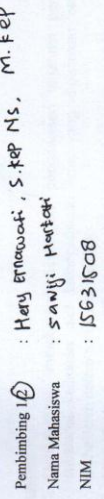 Pembimbing 2 : Hery Ernawati, S.Kep Ns, M.Kep
Nama Mahasiswa : Sanyji Hartati
NIM : 15631508